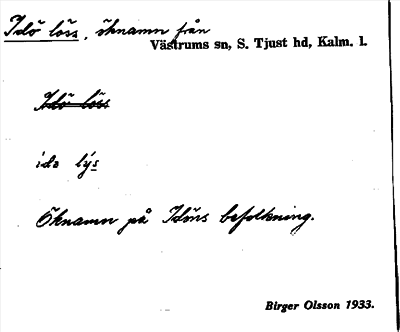 Idö löss, öknamn från
Västrums sn, S. Tjust hd, Kalm. l.
Idö löss
ida lýs
Öknamn på Idöns befolkning.
Birger Olsson 1933.